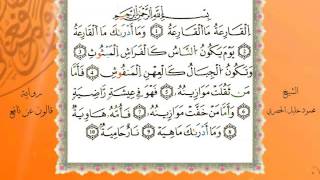 بِسْمِ اللَّهِ الرَّحْمَٰنِ الرَّحِيمِ
الْقَارِعَةُ مَا الْقَارِعَةُ ۝١ وَمَا أَدْرَىٰكَ مَا الْقَارِعَةُ
۝٢ يَوْمَ يَكُونُ النَّاسُ كَالْفَرَاشِ الْمَبْثُوثِ ۝٣
وَتَكُونُ الْجِبَالُ كَالْعِهْنِ الْمَنفُوشِ ۝٤ فَأَمَّا
مَن ثَقُلَتْ مَوَازِينُهُ ۝٥ فَهُوَ فِي عِيشَةٍ رَّاضِيَةٍ
۝٦ وَأَمَّا مَنْ خَفَّتْ مَوَازِينُهُ ۝٧ فَأُمُّهُ هَاوِيَةٌ
۝٨ وَمَا أَدْرَىٰكَ مَا هِيَهْ ۝٩ نَارٌ حَامِيَةٌ ۝١٠
الشيخ
محمود خليل الحصري
رواية
قالون عن نافع